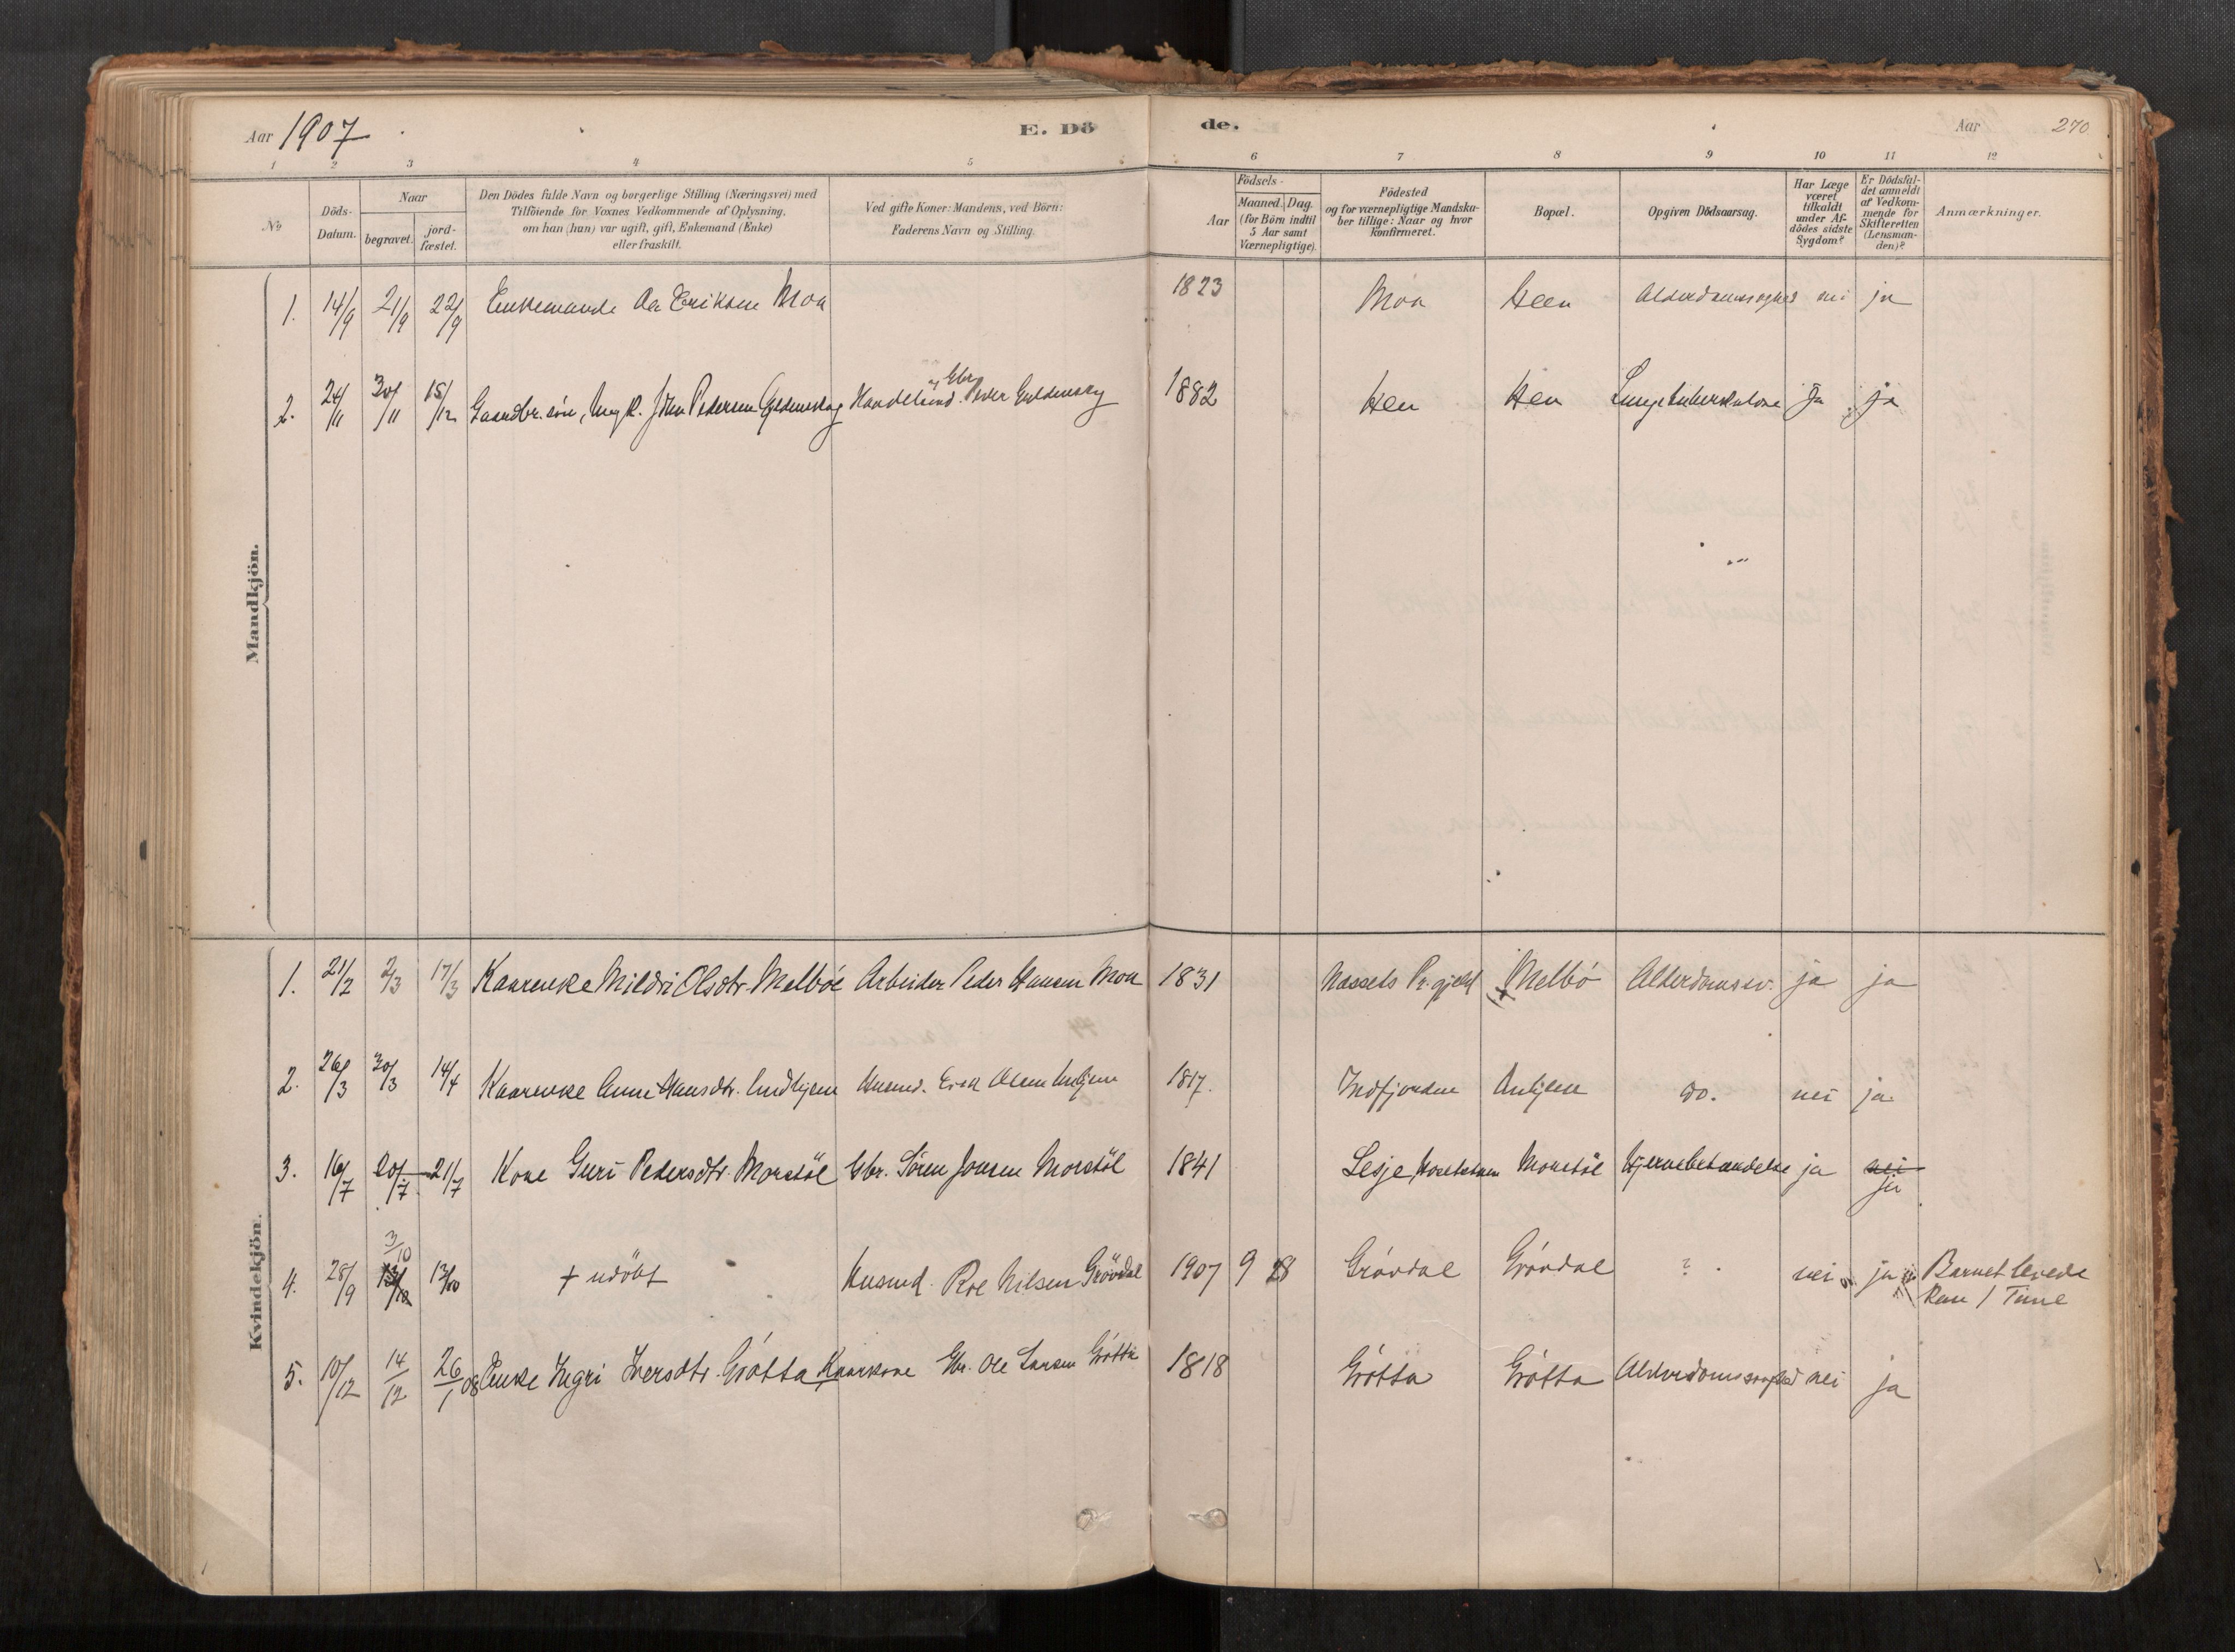 Aar 1907
E. Döde.
Aar 270
1 2 3 4 5 6 7 8 9 10 11 12
No
Döds-Datum.
Naar
begravet.
jord-fæstet.
Den Dödes fulde Navn og borgerlige Stilling (Næringsvei) med
Tilföiende for Voxnes Vedkommende af Oplysning,
om han (hun) var ugift, gift, Enkemand (Enke)
eller fraskilt.
Ved gifte Koner: Mandens, ved Börn:
Faderens Navn og Stilling.
Födsels-
Aar
Maaned. Dag.
(for Börn indtil
5 Aar samt
Værnepligtige).
Födested
og for værnepligtige Mandska-
ber tillige: Naar og hvor
konfirmeret.
Bopæl.
Opgiven Dödsaarsag.
Har Læge
været
tilkaldt
under Af-
dödes sidste
Sygdom?
Er Dödsfal-
det anmeldt
af Vedkom-
mende for
Skifteretten
(Lensman-
den)?
Anmærkninger.
Mandkjön.
1. 14/9 21/9 22/9 Enkemand Ole Eriksen Moa 1823 Moa Heen nei ja
2. 24/11 30/11 15/12 Gaardbr. søn, Ungk. John Pedersen Gyldenskog Peder 1882 Hen Hen Lungetuberkulose Ja ja
Kvindekjön.
1. 21/2 2/3 17/3 Kaarenke Mildri Olsdtr. Melbøe Arbeider Peder Hansen Moa 1831 Næssets Pr.gjeld Melbö Alderdomssv. ja ja
2. 26/3 30/3 14/4 Kaarenke Anne Hansdtr. Husmd. Erik Olsen 1817. Indfjorden do. nei ja.
3. 16/7 20/7 21/7 Kone Guri Pedersdtr. Morstöl Gbr. Sören Jonsen Morstöl 1841 Lesje Morstöl Hjernebetændelse ja nei ja
4. 28/9 13/10 3/10 13/10 + udöbt Husmd. Roe Nilsen Grövdal 1907 9 28 Grövdal Grövdal ? nei ja Barnet levede
kun 1 Time
5. 10/12 14/12 26/1 08 Enke Ingri Iversdtr. Grötta Kaarkone Gbr. Ole Larsen Grötta 1818 Grötta Grötta nei ja